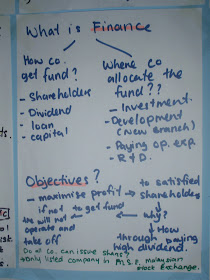 What is Finance
How co. get fund?
- Shareholders
- Dividend
- loan
- capital
Where co allocate the fund??
- Investment.
- Development (new branch)
- Paying op. exp
- R & D.
Objectives?
- maximise profit → to satisfied shareholders
if not to get fund
the will not operate and take off
← why?
↓ How
through paying high dividend.
Do all co. can issue shares?
→ Only listed company in M.S.E. Malaysian Stock Exchange.